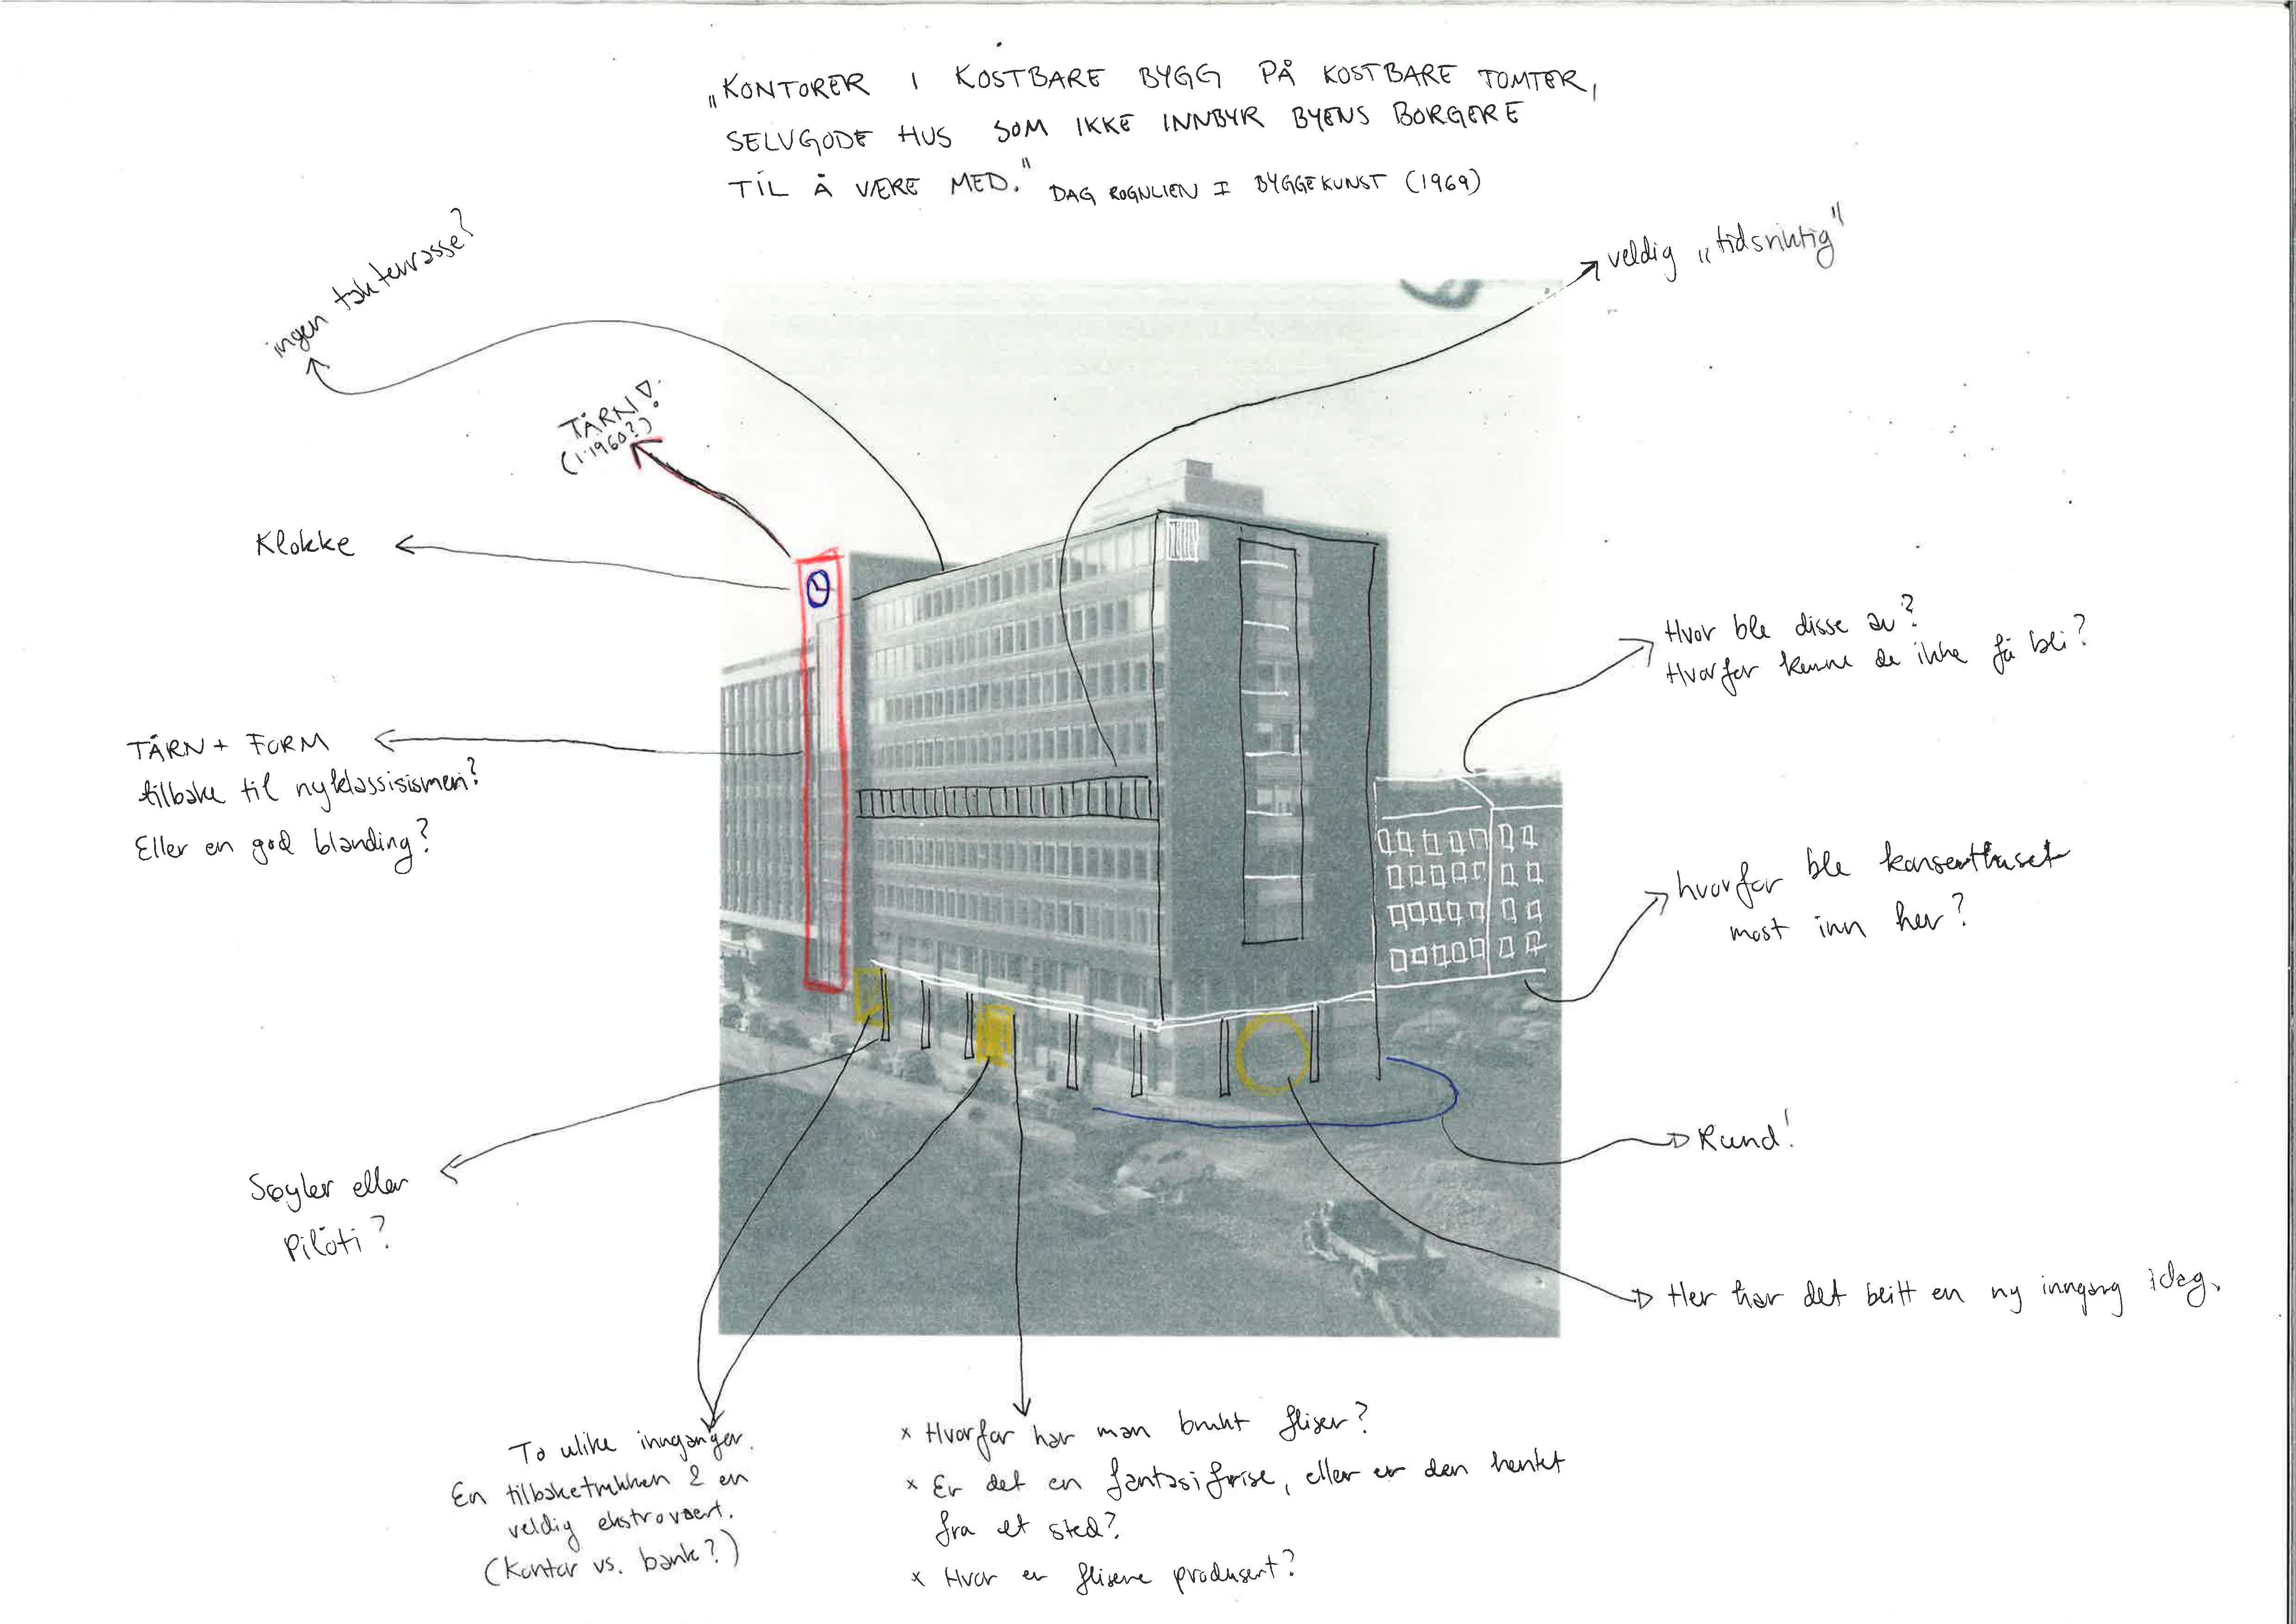 „KONTORER I KOSTBARE BYGG PÅ KOSTBARE TOMTER,
SELVGODE HUS SOM IKKE INNBYR BYENS BORGERE
TIL Å VÆRE MED." DAG ROGNLIEN I BYGGEKUNST (1969)
ingen takterrasse?
veldig „tidsriktig"
TÅRN!
(i 1960?)
Klokke
Hvor ble disse av?
Hvorfor kunne de ikke få bli?
TÅRN + FORM
tilbake til nyklassisismen?
Eller en god blanding?
hvorfor ble konserthuset
most inn her?
Rund!
Søyler eller
Piloti?
Her har det blitt en ny inngang idag.
To ulike innganger.
En tilbaketrukken & en
veldig ekstrovært.
(Kontor vs. bank?)
x Hvorfor har man brukt fliser?
x Er det en fantasifrise, eller er den hentet
fra et sted?
x Hvor er flisene produsert?